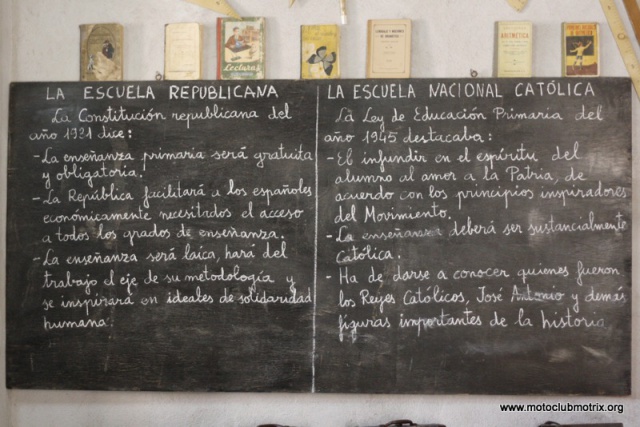 Lecturas
ARITMÉTICA
LA ESCUELA REPUBLICANA
La Constitución republicana del
año 1931 dice:
- La enseñanza primaria será gratuita
y obligatoria.
- La República facilitará a los españoles
económicamente necesitados el acceso
a todos los grados de enseñanza.
- La enseñanza será laica, hará del
trabajo el eje de su metodología y
se inspirará en ideales de solidaridad
humana.
LA ESCUELA NACIONAL CATÓLICA
La Ley de Educación Primaria del
año 1945 destacaba:
- El infundir en el espíritu del
alumno al amor a la Patria, de
acuerdo con los principios inspiradores
del Movimiento.
- La enseñanza deberá ser sustancialmente
Católica.
- Ha de darse a conocer quienes fueron
los Reyes Católicos, José Antonio y demás
figuras importantes de la historia
www.motoclubmotrix.org